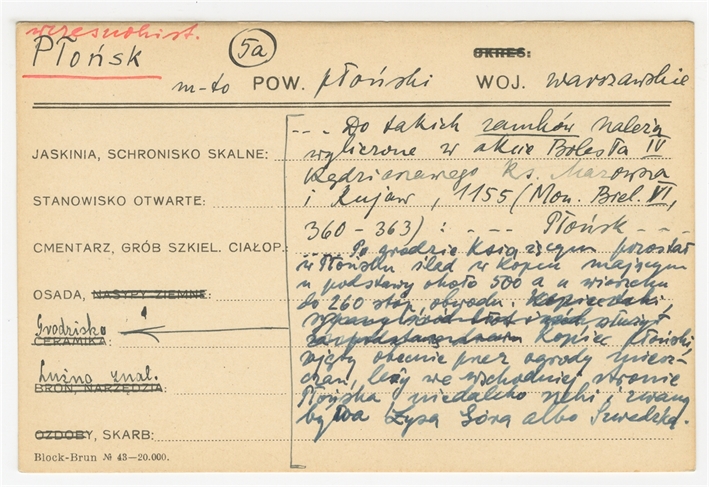 wczesnohist.
Płońsk
5a
OKRES:
m-to POW. płoński WOJ. warszawskie
- - - Do takich zamków należą
JASKINIA, SCHRONISKO SKALNE:
wyliczone w akcie Bolesła IV
Kędzierzawego Ks. Mazowsza
STANOWISKO OTWARTE:
i Kujaw, 1155 (Mon. Biel. VI,
360 - 363) : - - - Płońsk - - -
CMENTARZ, GRÓB SZKIEL. CIAŁOP.:
- - - Po grodzie książęcym pozostał
w Płońsku ślad w kopcu mającym
OSADA, NASYPY ZIEMNE:
u podstawy około 500 a u wierzchu
do 260 stóp obwodu.
Grodzisko
CERAMIKA:
Kopiec płoński
zajęty obecnie przez ogrody miesz-
Luźno znal.
BROŃ NARZĘDZIA:
czan, leży we wschodniej stronie
Płońska, niedaleko rzeki i zwany
bywa Łysą Górą albo Szwedzką.
OZDOBY, SKARB:
Block-Brun № 43-20.000.